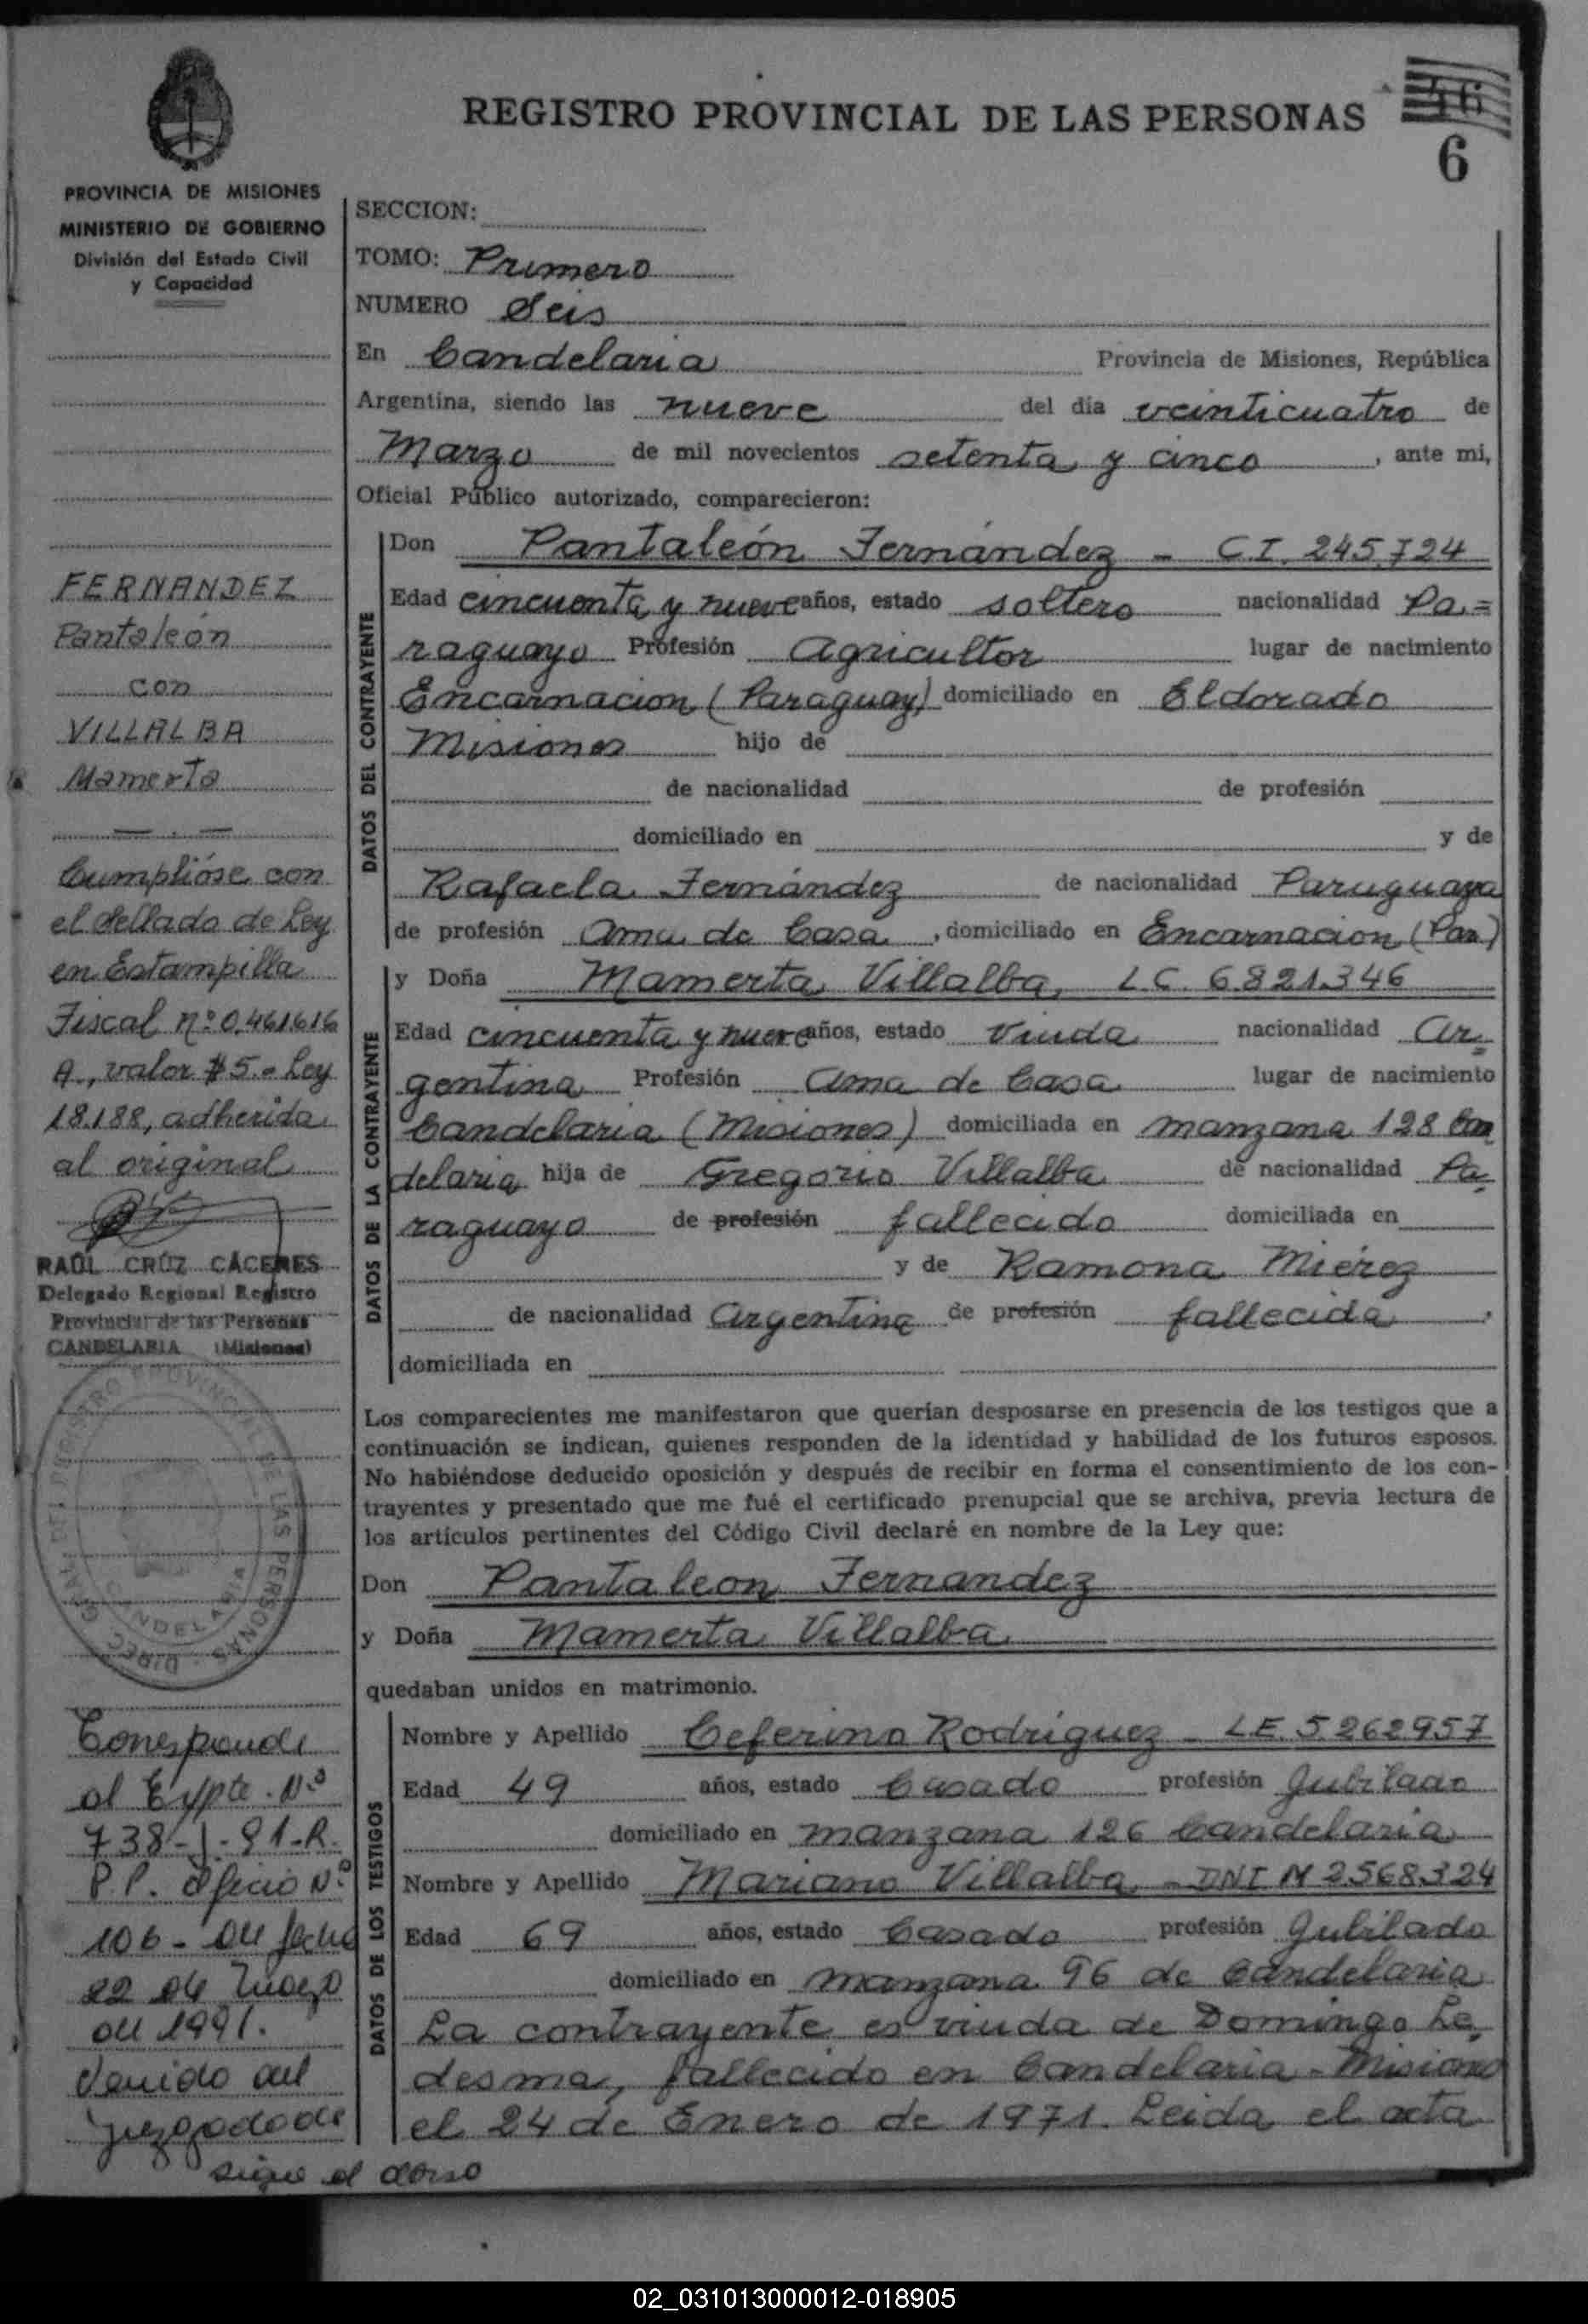 REGISTRO PROVINCIAL DE LAS PERSONAS
6
PROVINCIA DE MISIONES
MINISTERIO DE GOBIERNO
División del Estado Civil
y Capacidad
FERNANDEZ
Pantaleón
con
VILLALBA
Mamerta
Cumplióse con
el sellado de Ley
en Estampilla
Fiscal Nº 0.461.616
A., valor $ 5.= Ley
18.188, adherida
al original
RAÚL CRÚZ CÁCERES
Delegado Regional Registro
Provincial de las Personas
CANDELARIA (Misiones)
Corresponde
al Expte. Nº
738-J-91-R.
P.P. Oficio Nº
106- de fecha
22 de Marzo
de 1991.
Venido del
Juzgado de
sigue al dorso
SECCION:
TOMO: Primero
NUMERO Seis
En Candelaria Provincia de Misiones, República
Argentina, siendo las nueve del día veinticuatro de
Marzo de mil novecientos setenta y cinco, ante mi,
Oficial Público autorizado, comparecieron:
DATOS DEL CONTRAYENTE
Don Pantaleón Fernández - C.I. 245.724
Edad cincuenta y nueve años, estado soltero nacionalidad Pa=
raguayo Profesión Agricultor lugar de nacimiento
Encarnacion (Paraguay) domiciliado en Eldorado
Misiones hijo de
de nacionalidad de profesión
domiciliado en y de
Rafaela Fernández de nacionalidad Paraguaya
de profesión Ama de Casa, domiciliado en Encarnacion (Par)
DATOS DE LA CONTRAYENTE
y Doña Mamerta Villalba, L.C. 6.821.346
Edad cincuenta y nueve años, estado Viuda nacionalidad Ar=
gentina Profesión Ama de Casa lugar de nacimiento
Candelaria (Misiones) domiciliada en manzana 128 Can
delaria hija de Gregorio Villalba de nacionalidad Pa
raguayo de profesión fallecido domiciliada en
y de Ramona Miérez
de nacionalidad Argentina de profesión fallecida,
domiciliada en
Los comparecientes me manifestaron que querían desposarse en presencia de los testigos que a
continuación se indican, quienes responden de la identidad y habilidad de los futuros esposos.
No habiéndose deducido oposición y después de recibir en forma el consentimiento de los con-
trayentes y presentado que me fué el certificado prenupcial que se archiva, previa lectura de
los artículos pertinentes del Código Civil declaré en nombre de la Ley que:
Don Pantaleon Fernandez
y Doña Mamerta Villalba
quedaban unidos en matrimonio.
DATOS DE LOS TESTIGOS
Nombre y Apellido Ceferino Rodríguez - L.E. 5.262957
Edad 49 años, estado Casado profesión Jubilado
domiciliado en manzana 126 Candelaria
Nombre y Apellido Mariano Villalba - DNI M 2.568.324
Edad 69 años, estado Casado profesión Jubilado
domiciliado en manzana 96 de Candelaria
La contrayente es viuda de Domingo Le
desma, fallecido en Candelaria - Misiones
el 24 de Enero de 1971. Leida el acta
02_031013000012-018905